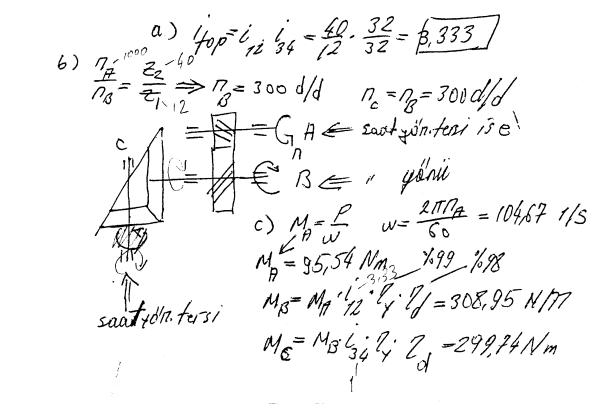 a) i_top = i_12 · i_34 = 40/12 · 32/32 = 3,333
b) n_A/n_B = Z_2/Z_1 ⇒ n_B = 300 d/d   n_C = n_B = 300 d/d
-1000 -40
-12
C
A ⇐ saat yön. tersi ise!
n
B ⇐ " yönü
c) M_A = P/w   w = 2πn_A/60 = 104,67 1/s
M_A = 95,54 Nm   %99   %98
3,33
M_B = M_A · i_12 · η_y · η_d = 308,95 N/m
saat yön. tersi
M_C = M_B · i_34 · η_y · η_d = 299,74 Nm
1